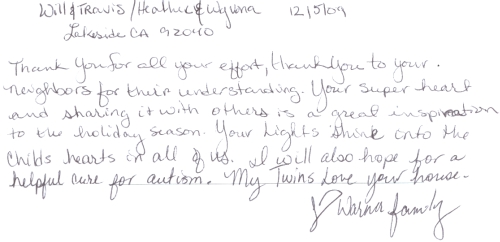 Will & Travis / Heather & Wynna 12/5/09
Lakeside CA 92040
Thank You for all your effort, thank You to your.
neighbors for their understanding. Your super heart
and sharing it with others is a great inspiration
to the holiday season. Your Lights shine into the
childs hearts in all of us. I will also hope for a
helpful cure for autism. My Twins Love your house.
Warna family